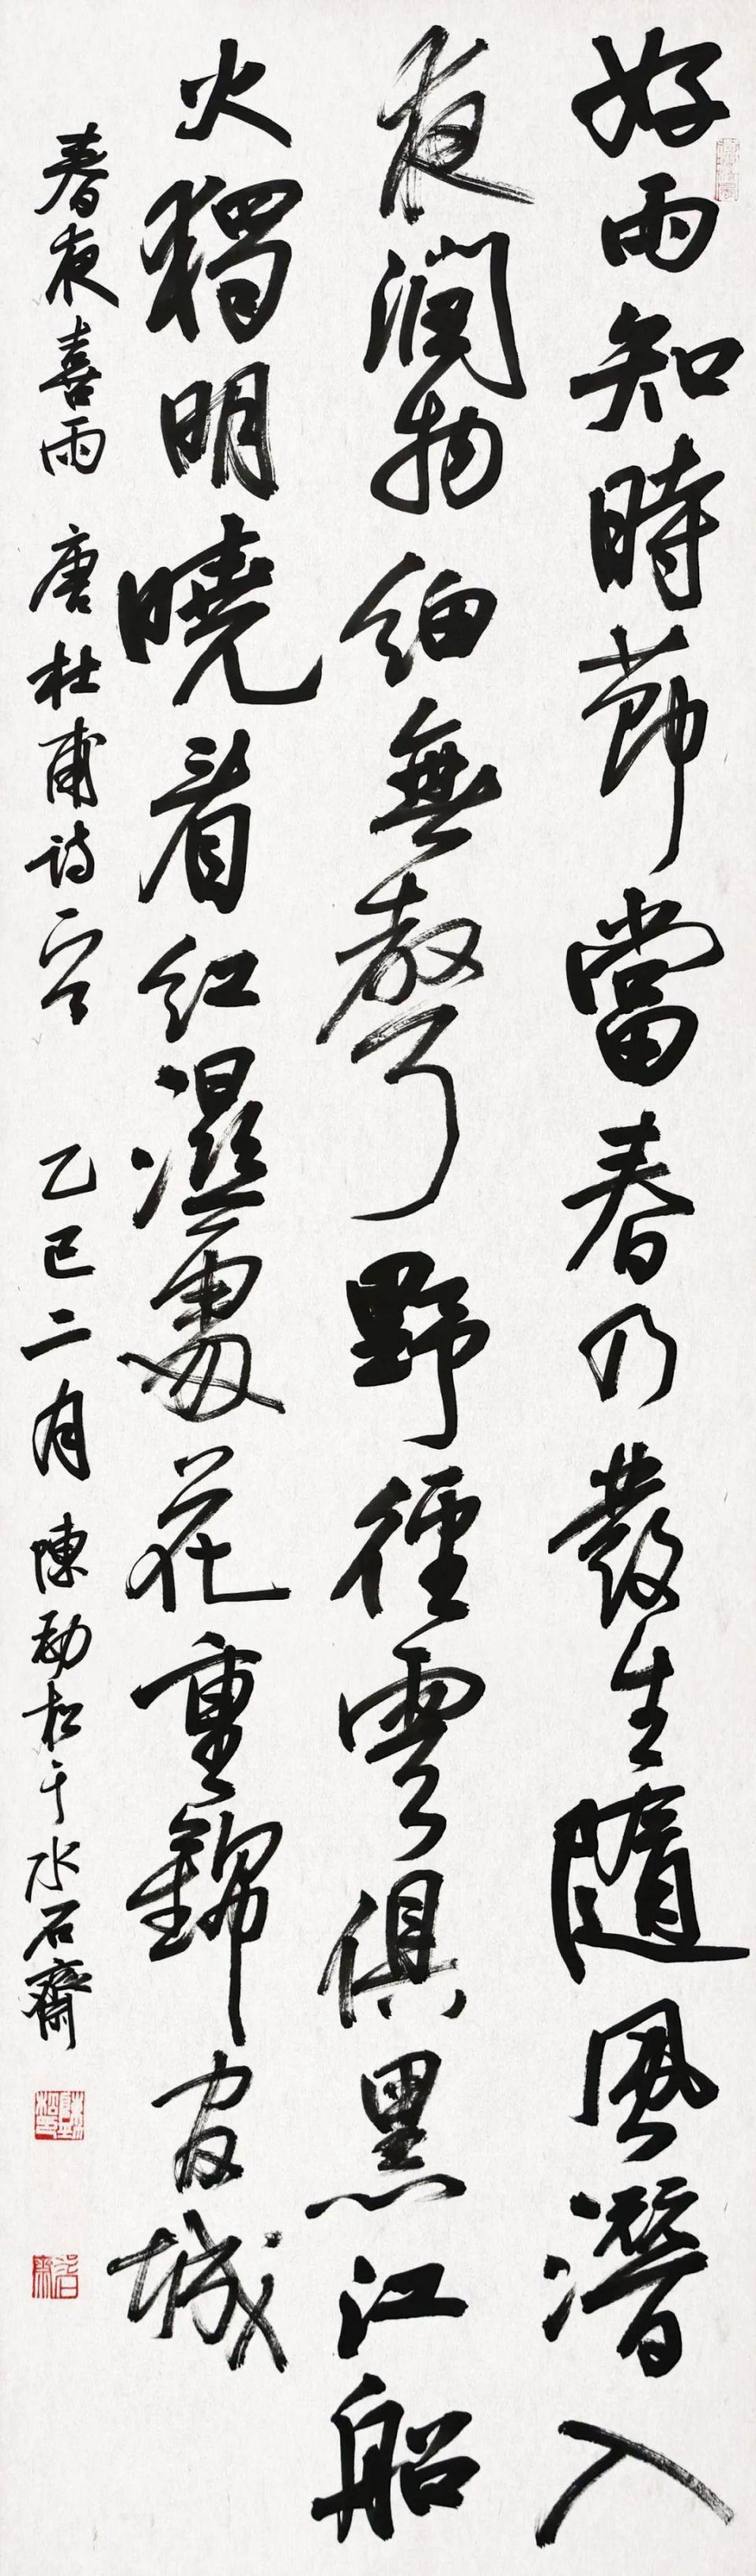 好雨知時節當春乃發生隨風潛入
夜潤物細無聲野徑雲俱黑江船
火獨明曉看紅濕處花重錦官城
春夜喜雨 唐杜甫詩一首 乙巳二月 陳勁松于水石齋